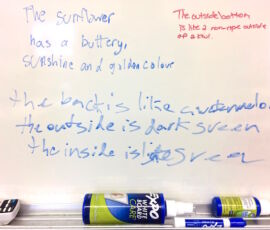 The sunflower
has a buttery,
sunshine and golden colour
The outside bottom
is like a non-rope outside
of a
the back is like a
the outside is dark green
the inside is green
EXPO
WHITE
BOARD
CARE
EXPO